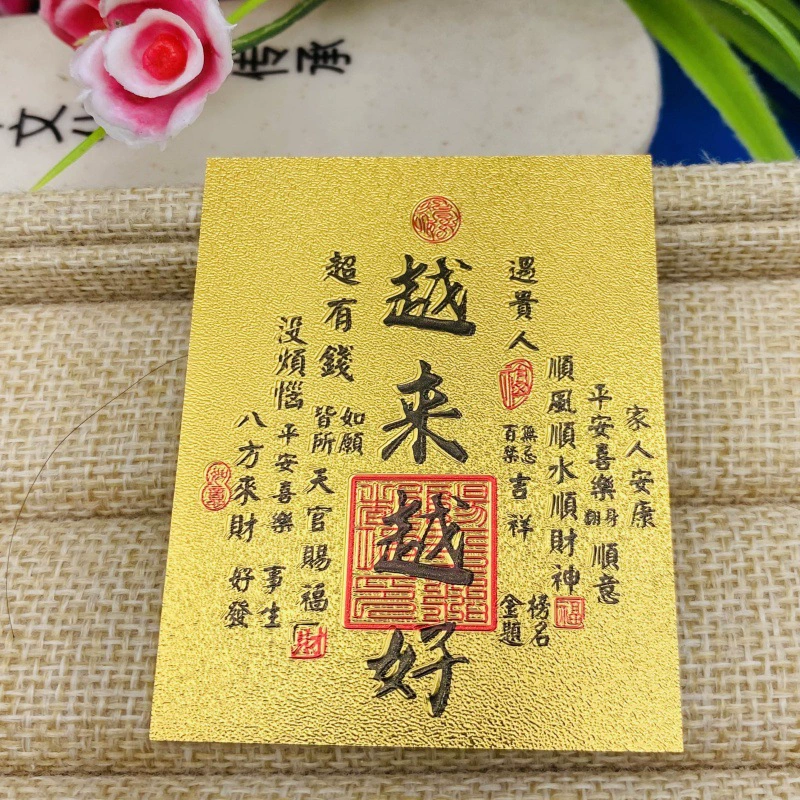 文化传承
家人安康
平安喜樂
順意
順風順水順財神
榜名
金題
遇貴人
無忌
百禁
吉祥
越来越好
超有錢
如願
皆所
天官賜福
財
没煩惱
平安喜樂
事生
八方來財
好發
福